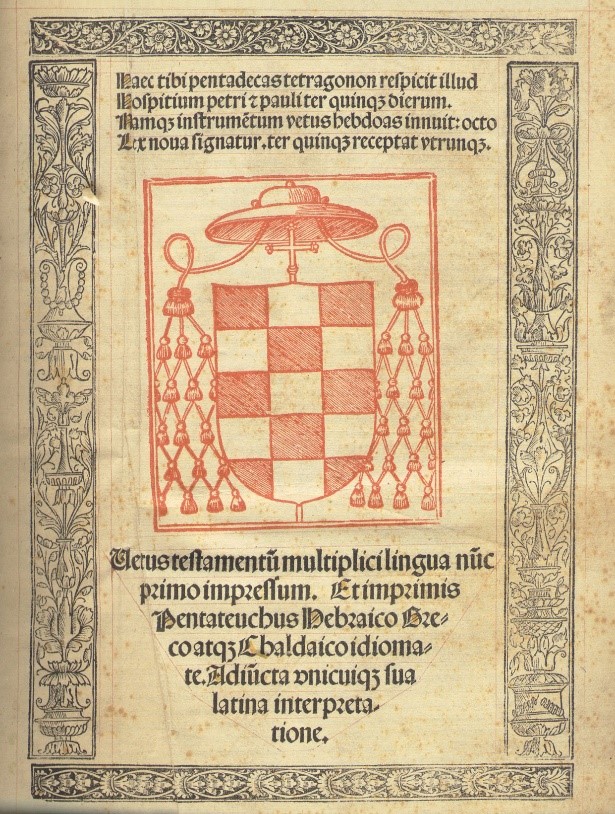 Haec tibi pentadecas tetragonon respicit illud
Hospitium petri ⁊ pauli ter quinqꝫ dierum.
Namqꝫ instrumẽtum vetus hebdoas innuit: octo
Lex noua signatur. ter quinqꝫ receptat vtrunqꝫ.
Uetus testamentũ multiplici lingua nũc
primo impressum. Et imprimis
Pentateuchus Hebraico Gre-
co atqꝫ Chaldaico idioma-
te. Adiũcta vnicuiqꝫ sua
latina interpreta-
tione.